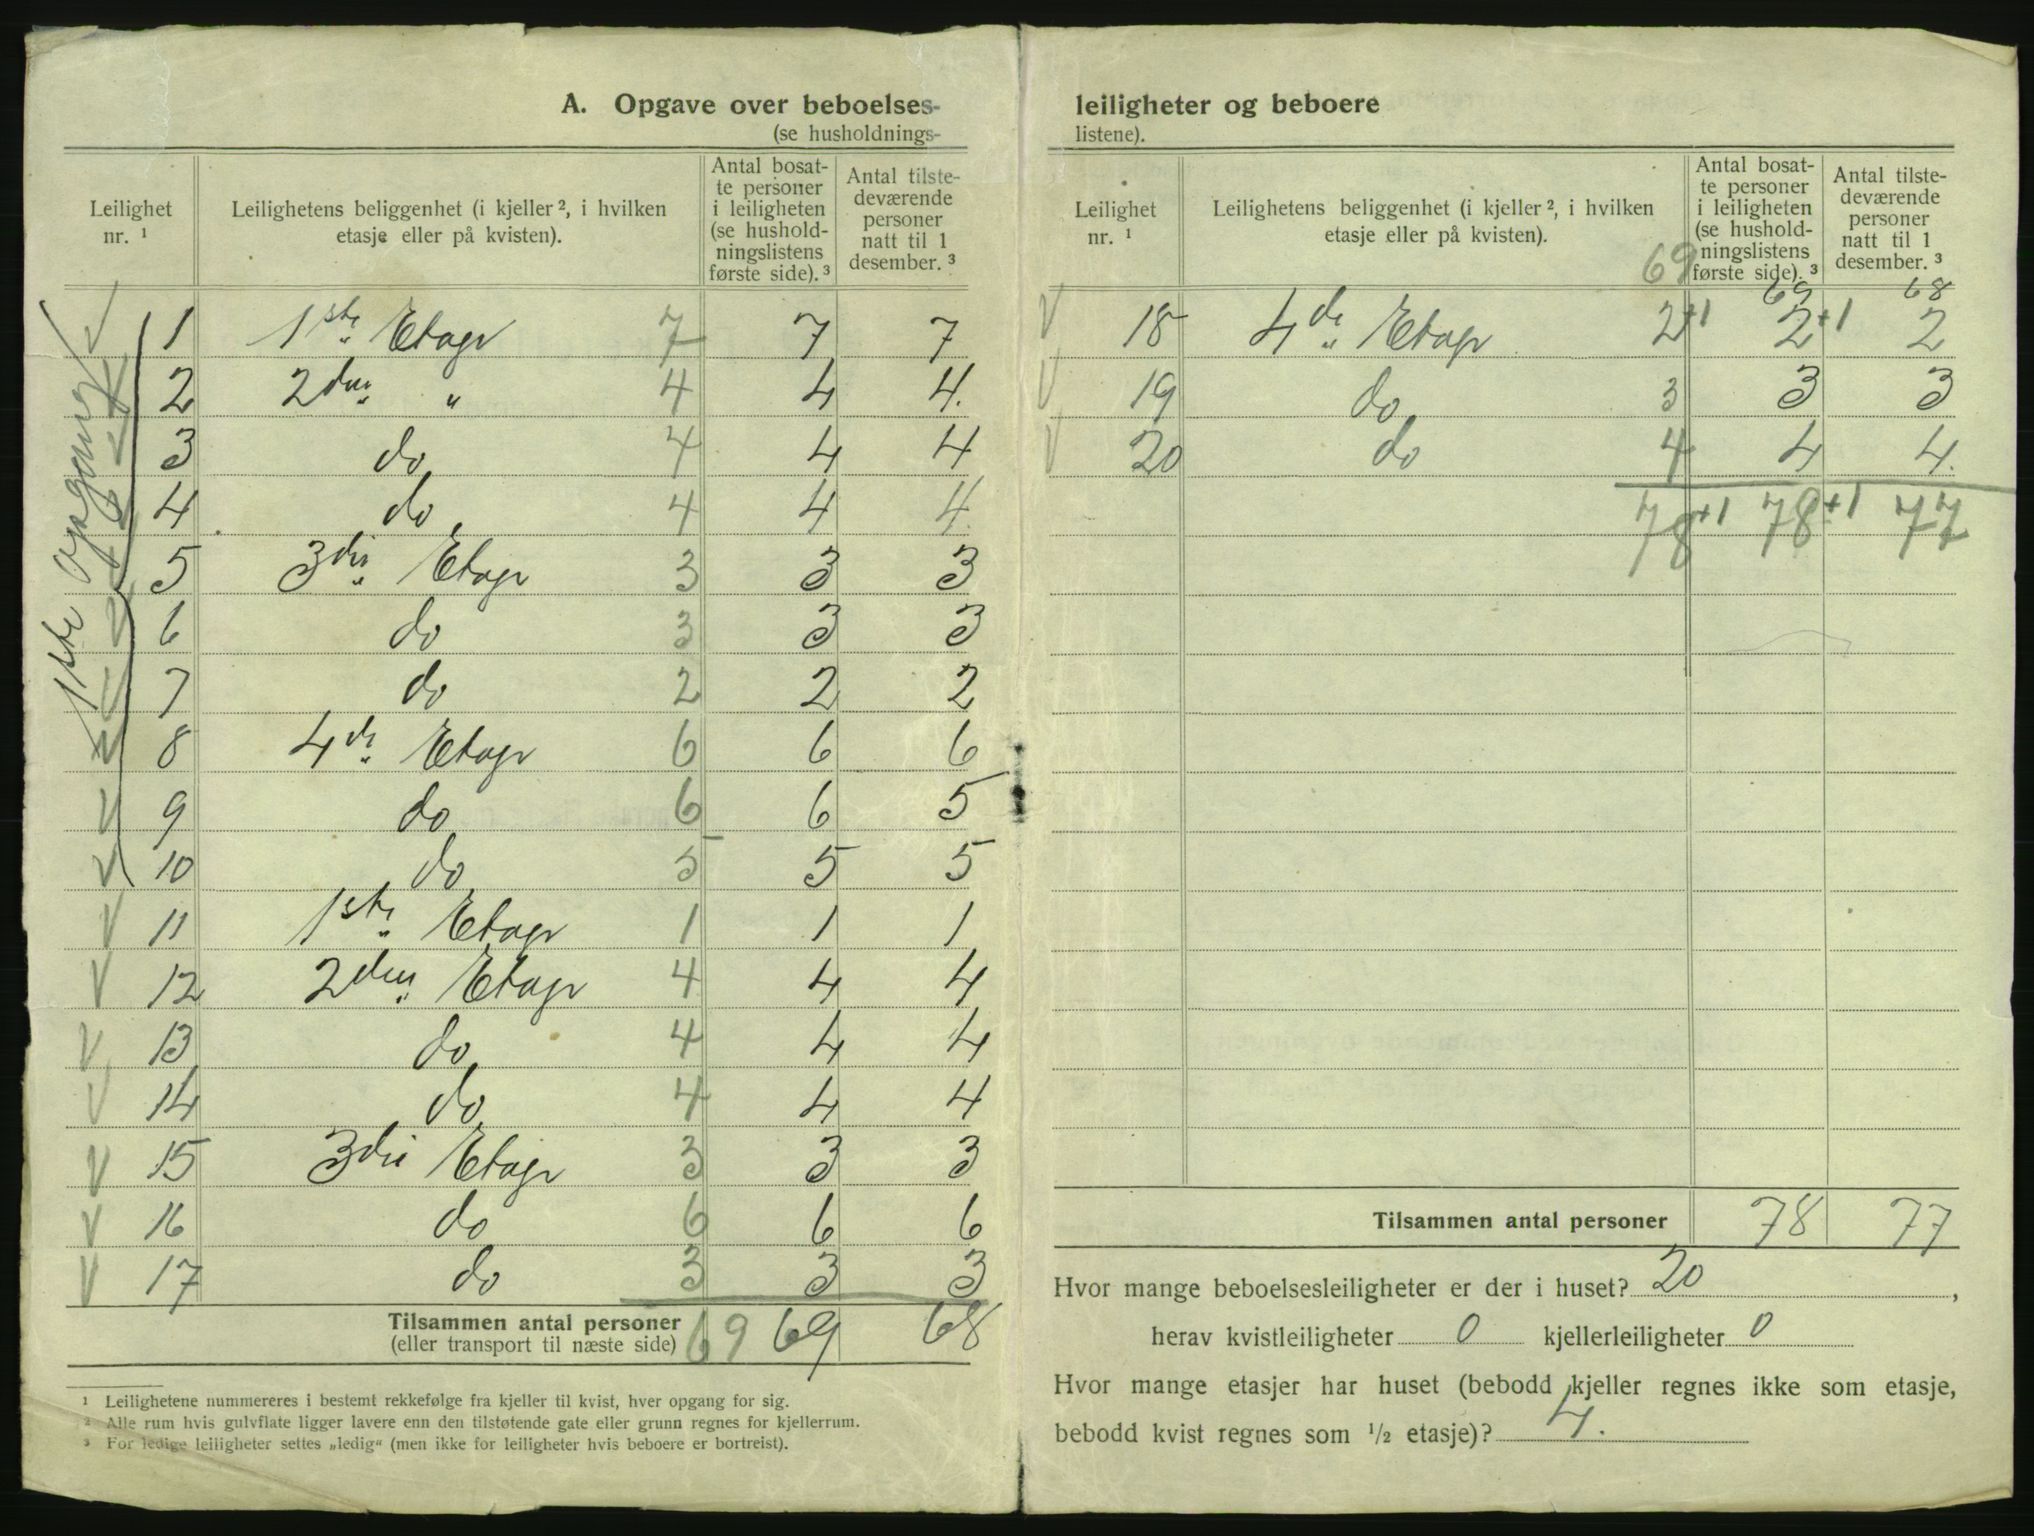 A. Opgave over beboelses-
(se husholdnings-
Leilighet nr. ¹ | Leilighetens beliggenhet (i kjeller ², i hvilken etasje eller på kvisten). | Antal bosatte personer i leiligheten (se husholdningslistens første side). ³ | Antal tilstedeværende personer natt til 1 desember. ³
1ste Opgang
1 1ste Etage 7 7 7
2 2den " 4 4 4.
3 do 4 4 4
4 do 4 4 4.
5 3die Etage 3 3 3
6 do 3 3 3
7 do 2 2 2
8 4de Etage 6 6 6
9 do 6 6 5
10 do 5 5 5
11 1ste Etage 1 1 1
12 2den Etage 4 4 4
13 do 4 4 4
14 do 4 4 4
15 3die Etage 3 3 3
16 do 6 6 6
17 do 3 3 3
Tilsammen antal personer
(eller transport til næste side) 69 69 68
¹ Leilighetene nummereres i bestemt rekkefølge fra kjeller til kvist, hver opgang for sig.
² Alle rum hvis gulvflate ligger lavere enn den tilstøtende gate eller grunn regnes for kjellerrum.
³ For ledige leiligheter settes „ledig“ (men ikke for leiligheter hvis beboere er bortreist).
leiligheter og beboere
listene).
Leilighet nr. ¹ | Leilighetens beliggenhet (i kjeller ², i hvilken etasje eller på kvisten). | Antal bosatte personer i leiligheten (se husholdningslistens første side). ³ | Antal tilstedeværende personer natt til 1 desember. ³
69 69 68
18 4de Etage 2+1 2+1 2
19 do 3 3 3
20 do 4 4 4.
78+1 78+1 77
Tilsammen antal personer 78 77
Hvor mange beboelsesleiligheter er der i huset? 20,
herav kvistleiligheter 0 kjellerleiligheter 0
Hvor mange etasjer har huset (bebodd kjeller regnes ikke som etasje,
bebodd kvist regnes som ½ etasje)? 4.